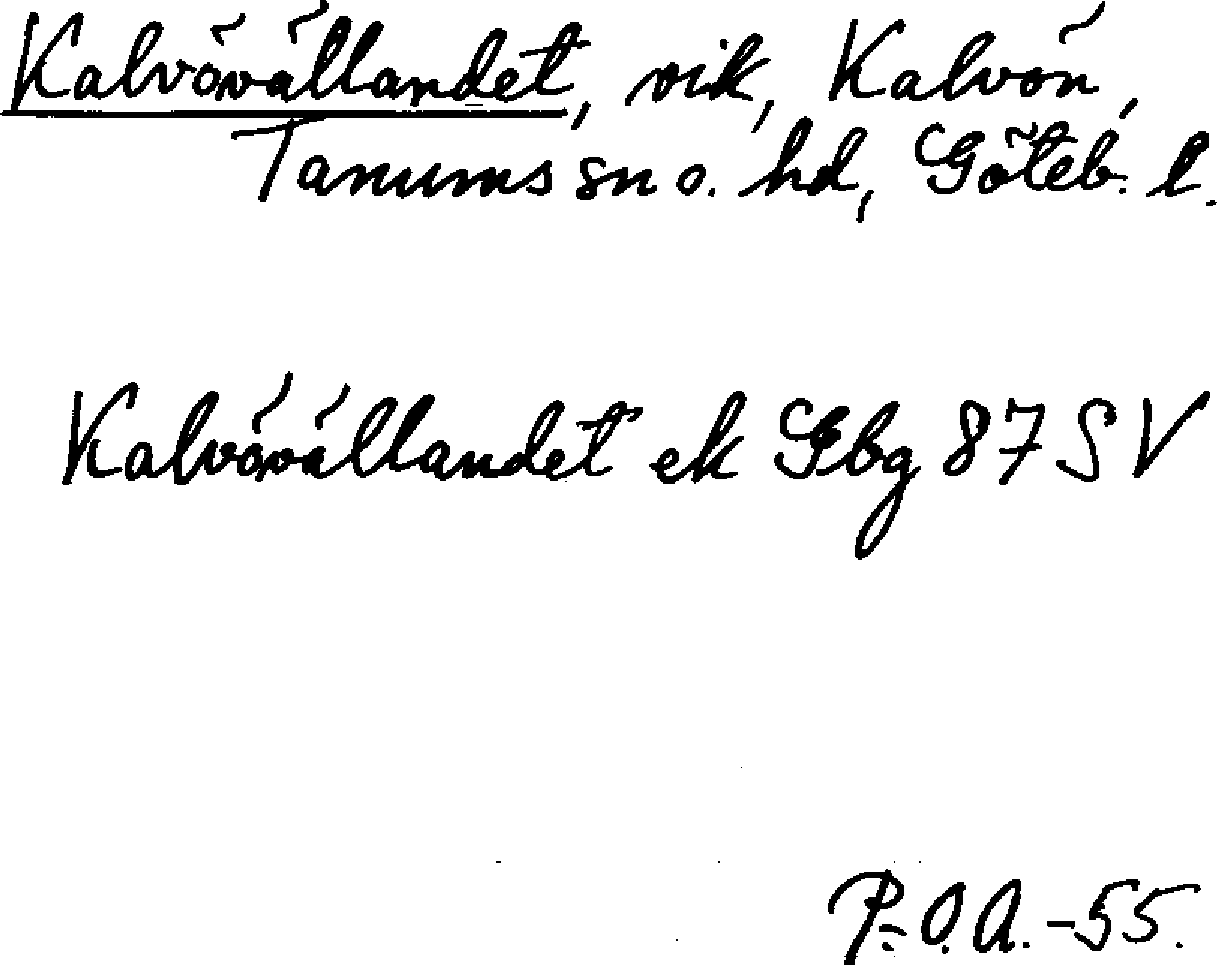 Kalvövällandet, vik, Kalvön,
Tanums sn o. hd, Göteb. l.
Kalvövällandet ek Gbg 87 SV
P.O.A. -55.